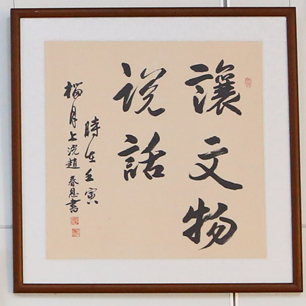 讓文物
説話
時在壬寅
榴月上浣趙春恩書